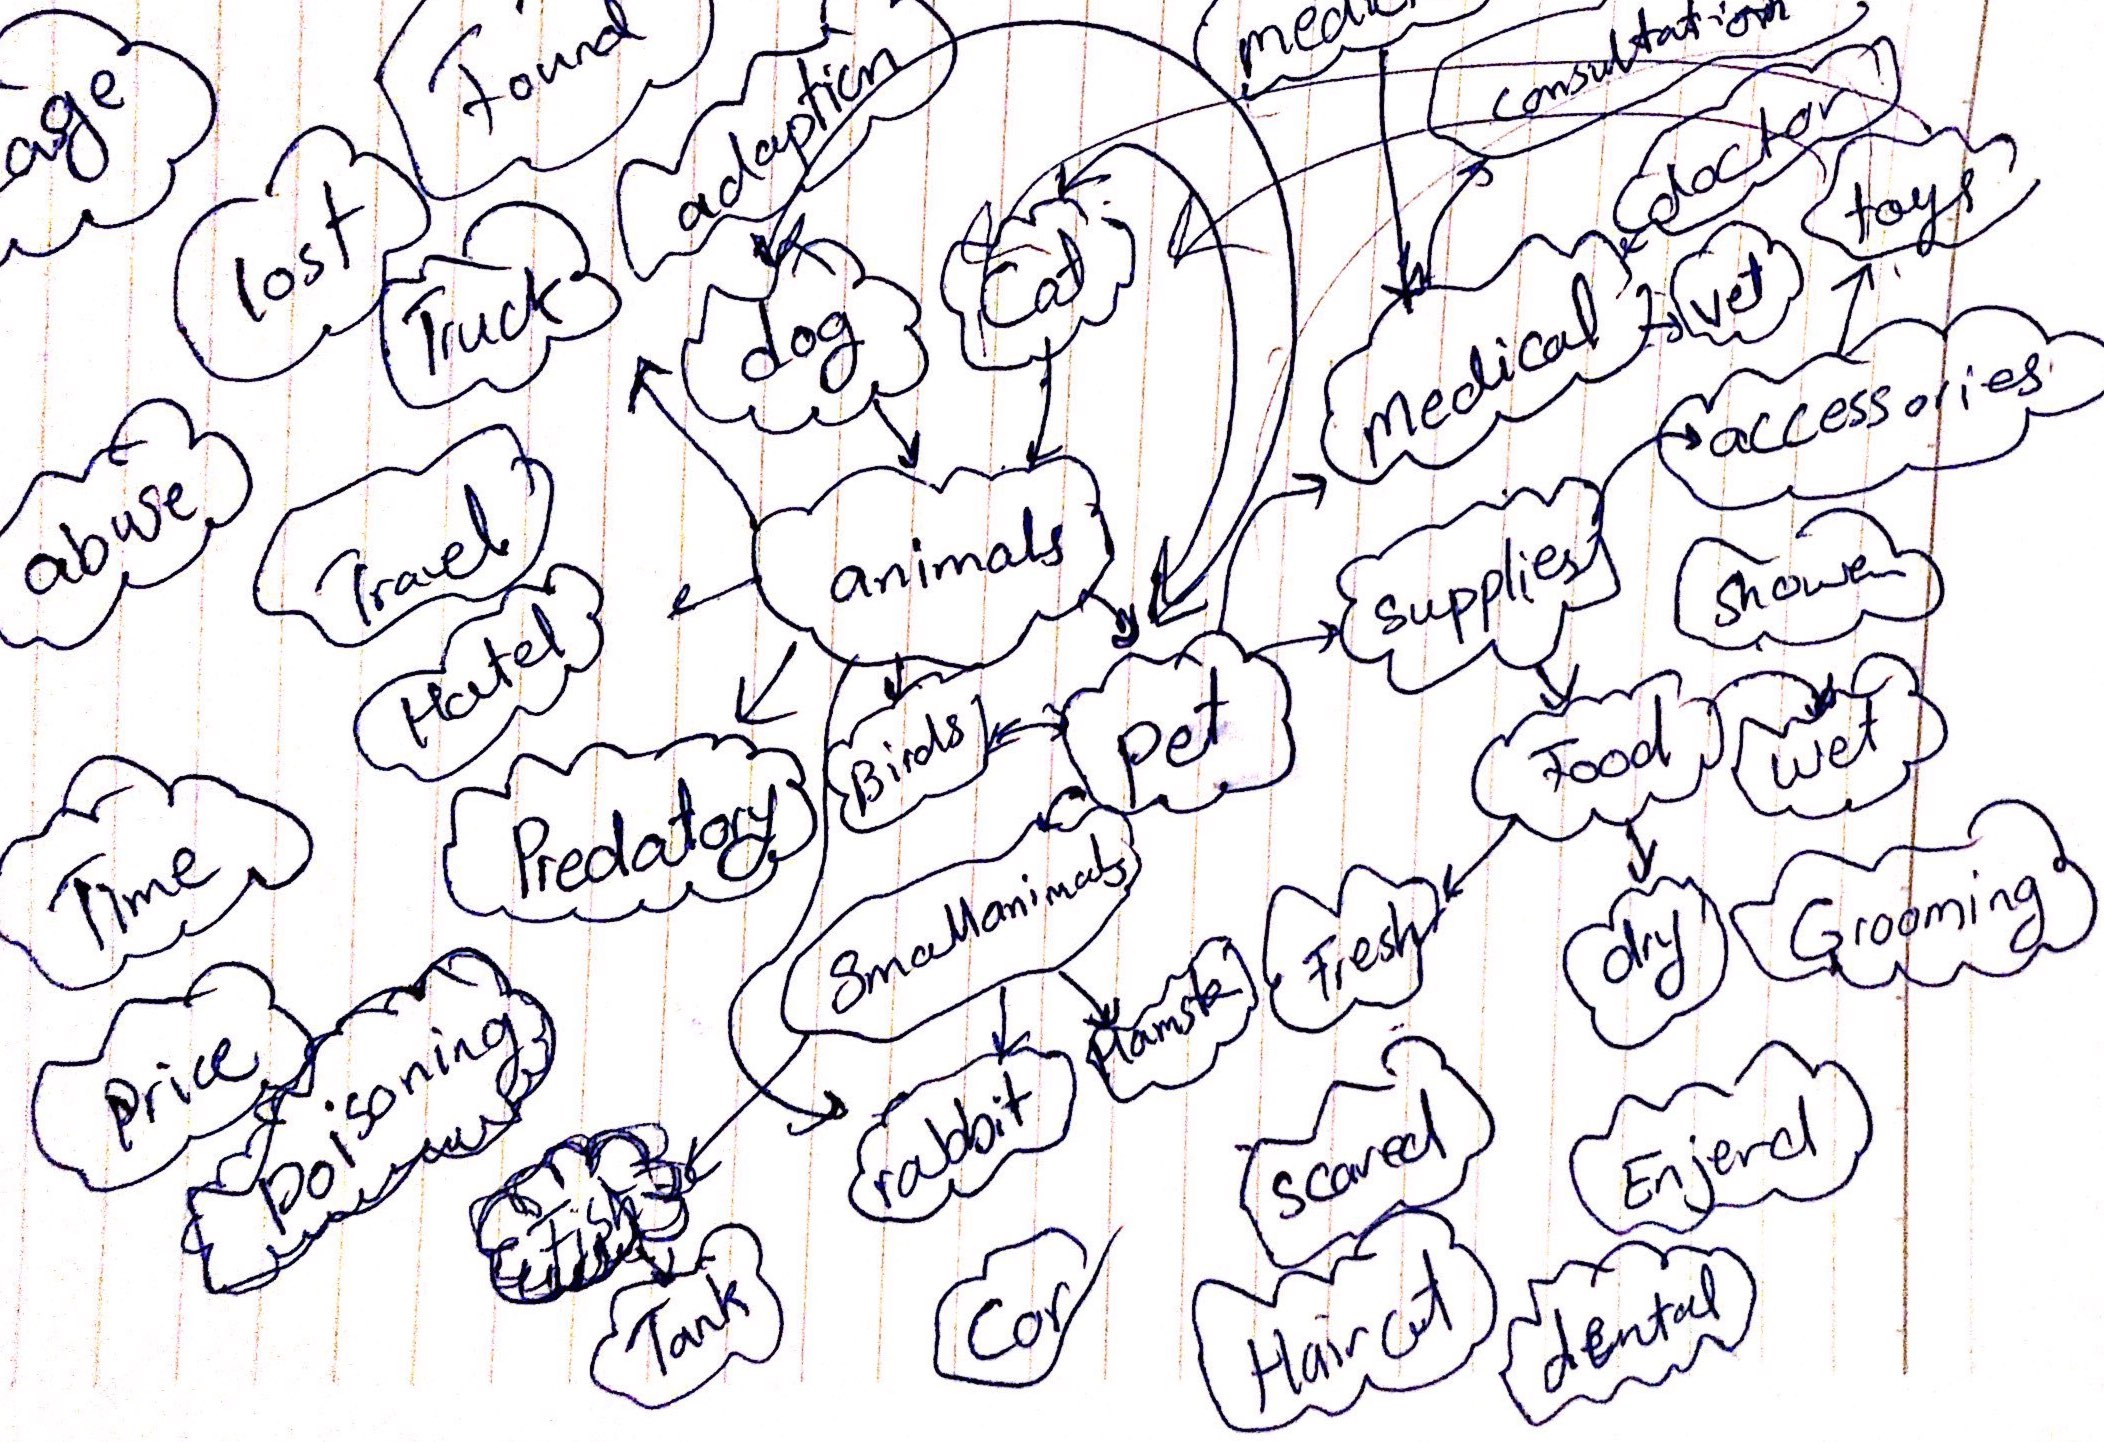 age
Found
adaption
consultation
doctor
toys
lost
Truck
dog
Cat
Medical
vet
accessories
abuse
Travel
animals
supplies
shower
Hotel
Birds
Pet
Food
wet
Predatory
Time
Small animals
Fresh
dry
Grooming
Price
Poisoning
Hamster
rabbit
scared
Enjerd
Fish
Tank
Cor
Hair cut
dental